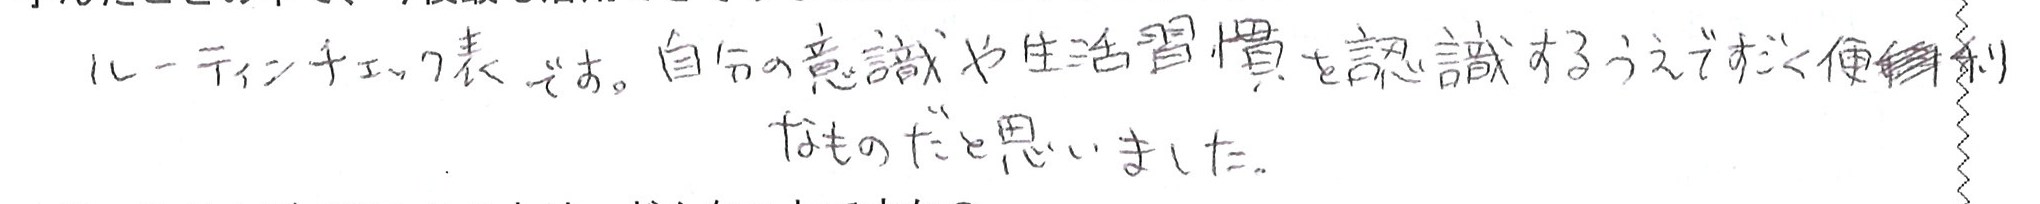 ルーティンチェック表です。自分の意識や生活習慣を認識するうえですごく便利
なものだと思いました。